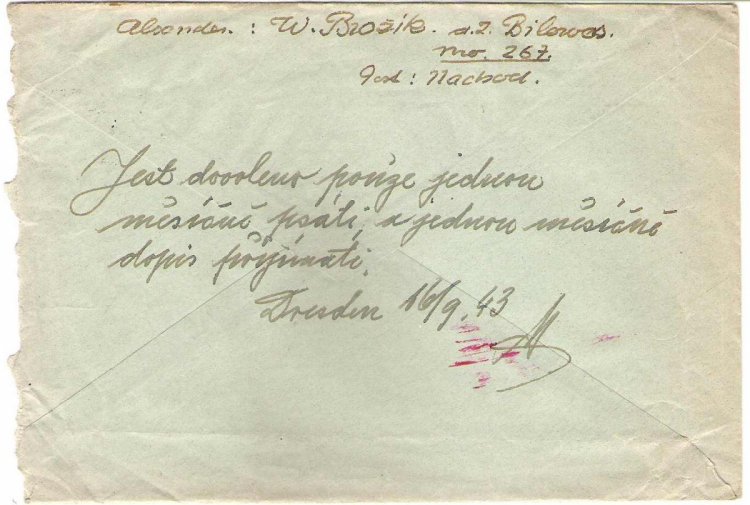 Absender : W. Brožik. z.Z. Bilowes.
No. 267.
Post : Nachod.
Jest dovoleno pouze jednou
měsíčně psáti, a jednou měsíčně
dopis přijímati.
Dresden 16/9. 43